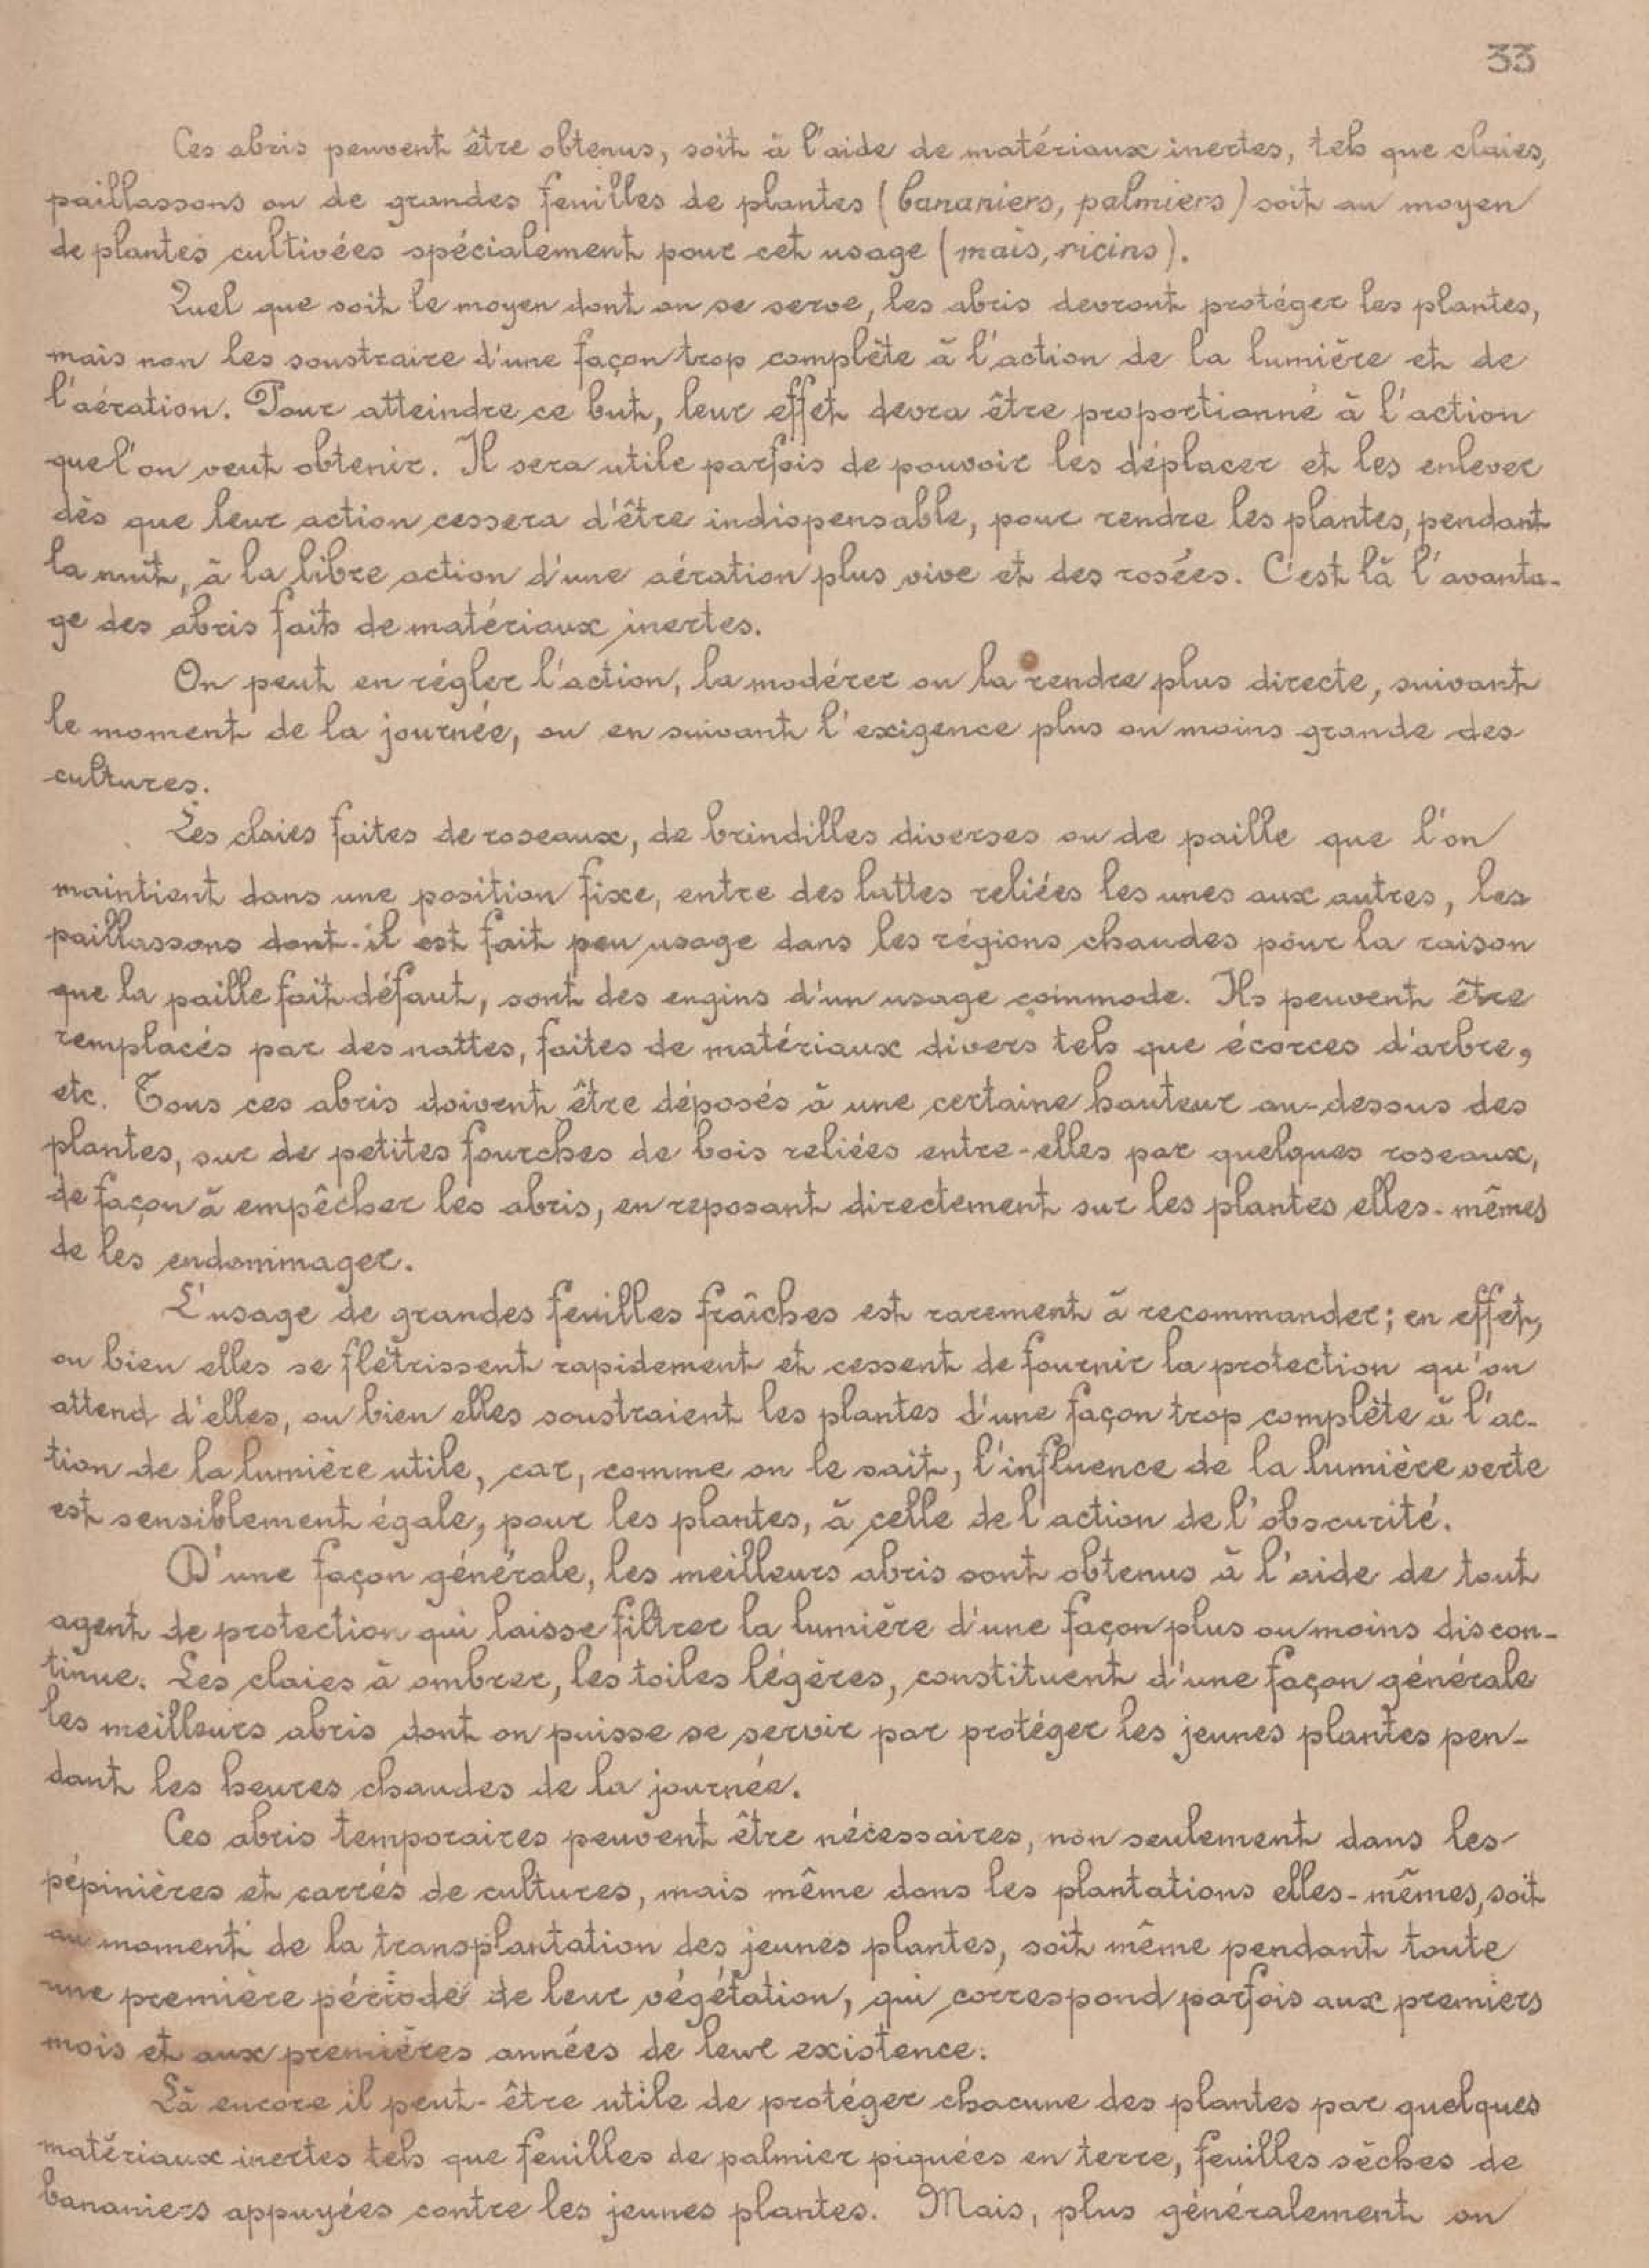 33
Ces abris peuvent être obtenus, soit à l'aide de matériaux inertes, tels que claies,
paillassons ou de grandes feuilles de plantes (bananiers, palmiers) soit au moyen
de plantes cultivées spécialement pour cet usage (maïs, ricins).
Quel que soit le moyen dont on se serve, les abris devront protéger les plantes,
mais non les soustraire d'une façon trop complète à l'action de la lumière et de
l'aération. Pour atteindre ce but, leur effet devra être proportionné à l'action
que l'on veut obtenir. Il sera utile parfois de pouvoir les déplacer et les enlever
dès que leur action cessera d'être indispensable, pour rendre les plantes, pendant
la nuit, à la libre action d'une aération plus vive et des rosées. C'est là l'avanta-
ge des abris faits de matériaux inertes.
On peut en régler l'action, la modérer ou la rendre plus directe, suivant
le moment de la journée, ou en suivant l'exigence plus ou moins grande des
cultures.
Les claies faites de roseaux, de brindilles diverses ou de paille que l'on
maintient dans une position fixe, entre des lattes reliées les unes aux autres, les
paillassons dont-il est fait peu usage dans les régions chaudes pour la raison
que la paille fait défaut, sont des engins d'un usage commode. Ils peuvent être
remplacés par des nattes, faites de matériaux divers tels que écorces d'arbre,
etc. Tous ces abris doivent être déposés à une certaine hauteur au-dessus des
plantes, sur de petites fourches de bois reliées entre-elles par quelques roseaux,
de façon à empêcher les abris, en reposant directement sur les plantes elles-mêmes
de les endommager.
L'usage de grandes feuilles fraîches est rarement à recommander; en effet,
ou bien elles se flétrissent rapidement et cessent de fournir la protection qu'on
attend d'elles, ou bien elles soustraient les plantes d'une façon trop complète à l'ac-
tion de la lumière utile, car, comme on le sait, l'influence de la lumière verte
est sensiblement égale, pour les plantes, à celle de l'action de l'obscurité.
D'une façon générale, les meilleurs abris sont obtenus à l'aide de tout
agent de protection qui laisse filtrer la lumière d'une façon plus ou moins discon-
tinue. Les claies à ombrer, les toiles légères, constituent d'une façon générale
les meilleurs abris dont on puisse se servir par protéger les jeunes plantes pen-
dant les heures chaudes de la journée.
Ces abris temporaires peuvent être nécessaires, non seulement dans les
pépinières et carrés de cultures, mais même dans les plantations elles-mêmes, soit
au moment de la transplantation des jeunes plantes, soit même pendant toute
une première période de leur végétation, qui correspond parfois aux premiers
mois et aux premières années de leur existence.
Là encore il peut-être utile de protéger chacune des plantes par quelques
matériaux inertes tels que feuilles de palmier piquées en terre, feuilles sèches de
bananiers appuyées contre les jeunes plantes. Mais, plus généralement on